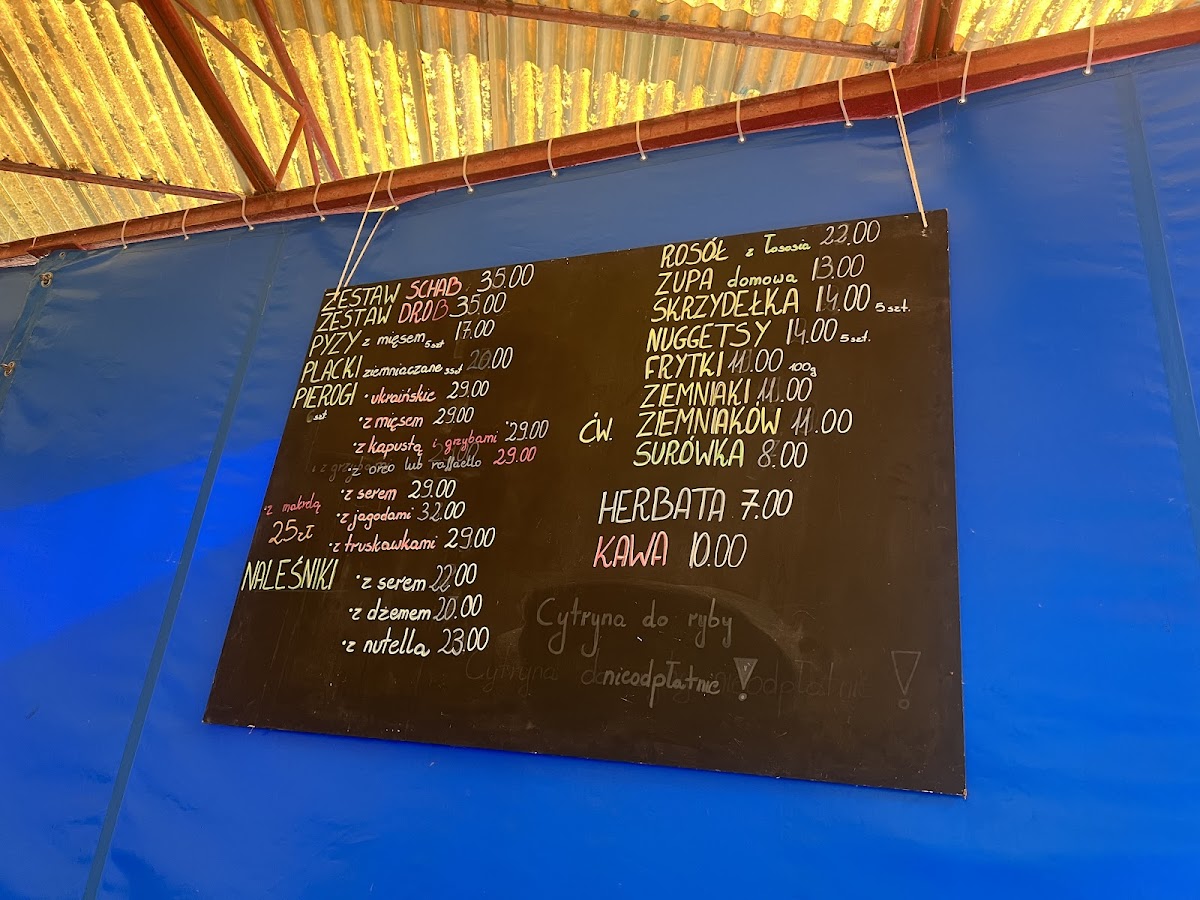 ZESTAW SCHAB 35.00
ZESTAW DRÓB 35.00
PYZY z mięsem 5szt 17.00
PLACKI ziemniaczane 3szt 20.00
PIEROGI • ukraińskie 29.00
6szt
• z mięsem 29.00
• z kapustą i grzybami 29.00
• z oreo lub raffaello 29.00
• z serem 29.00
• z jagodami 32.00
• z truskawkami 29.00
25zł
NALEŚNIKI • z serem 22.00
• z dżemem 20.00
• z nutellą 23.00
ROSÓŁ z łososia 22.00
ZUPA domowa 13.00
SKRZYDEŁKA 14.00 5szt.
NUGGETSY 14.00 5szt.
FRYTKI 11.00 100g
ZIEMNIAKI 11.00
ĆW. ZIEMNIAKÓW 11.00
SURÓWKA 8.00
HERBATA 7.00
KAWA 10.00
Cytryna do ryby
nieodpłatnie !